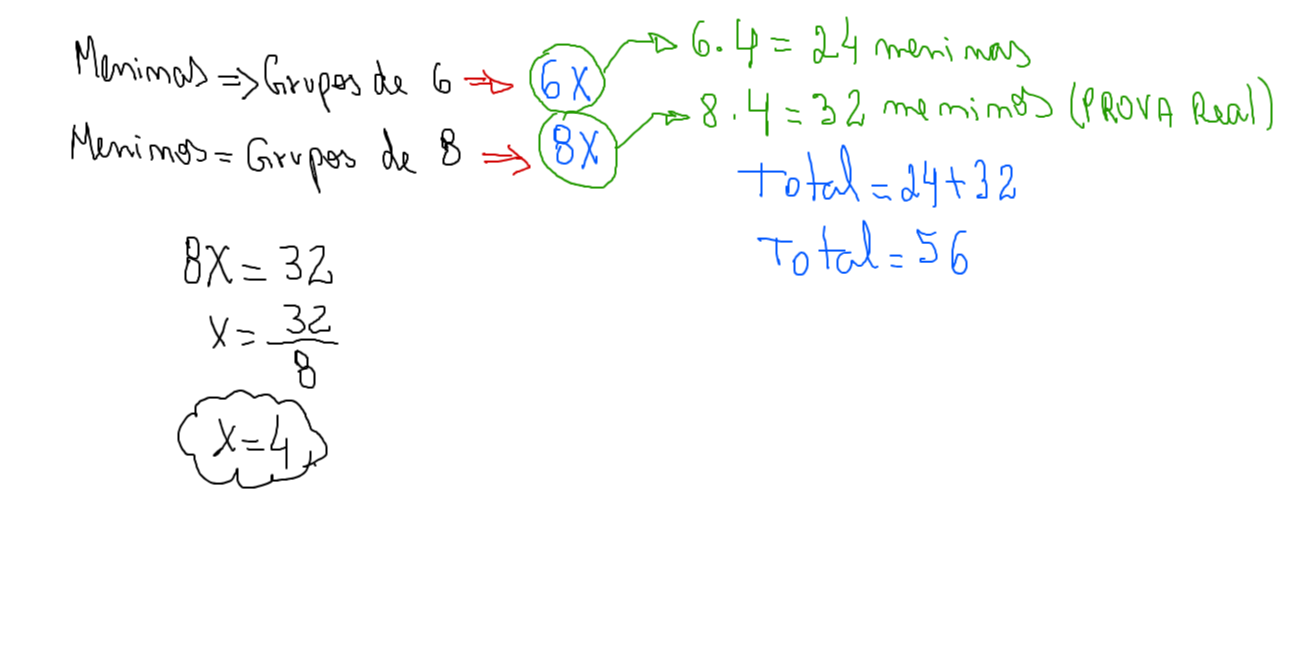 Meninas => Grupos de 6 => 6X → 6.4 = 24 meninas
Meninos = Grupos de 8 => 8X → 8.4 = 32 meninos (PROVA Real)
Total = 24 + 32
Total = 56
8X = 32
X = 32
8
X = 4